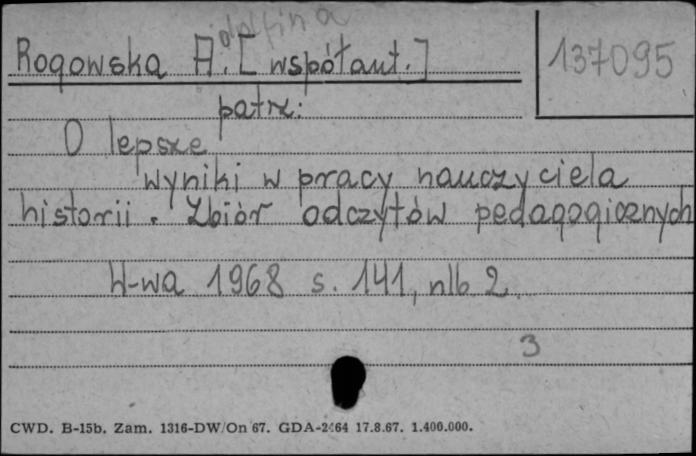 Rogowska A. [współaut.]
137095
patrz:
O lepsze
wyniki w pracy nauczyciela
historii. Zbiór odczytów pedagogicznych
W-wa 1968 s. 141, nlb 2
3
CWD. B-15b. Zam. 1316-DW/On 67. GDA-2464 17.8.67. 1.400.000.